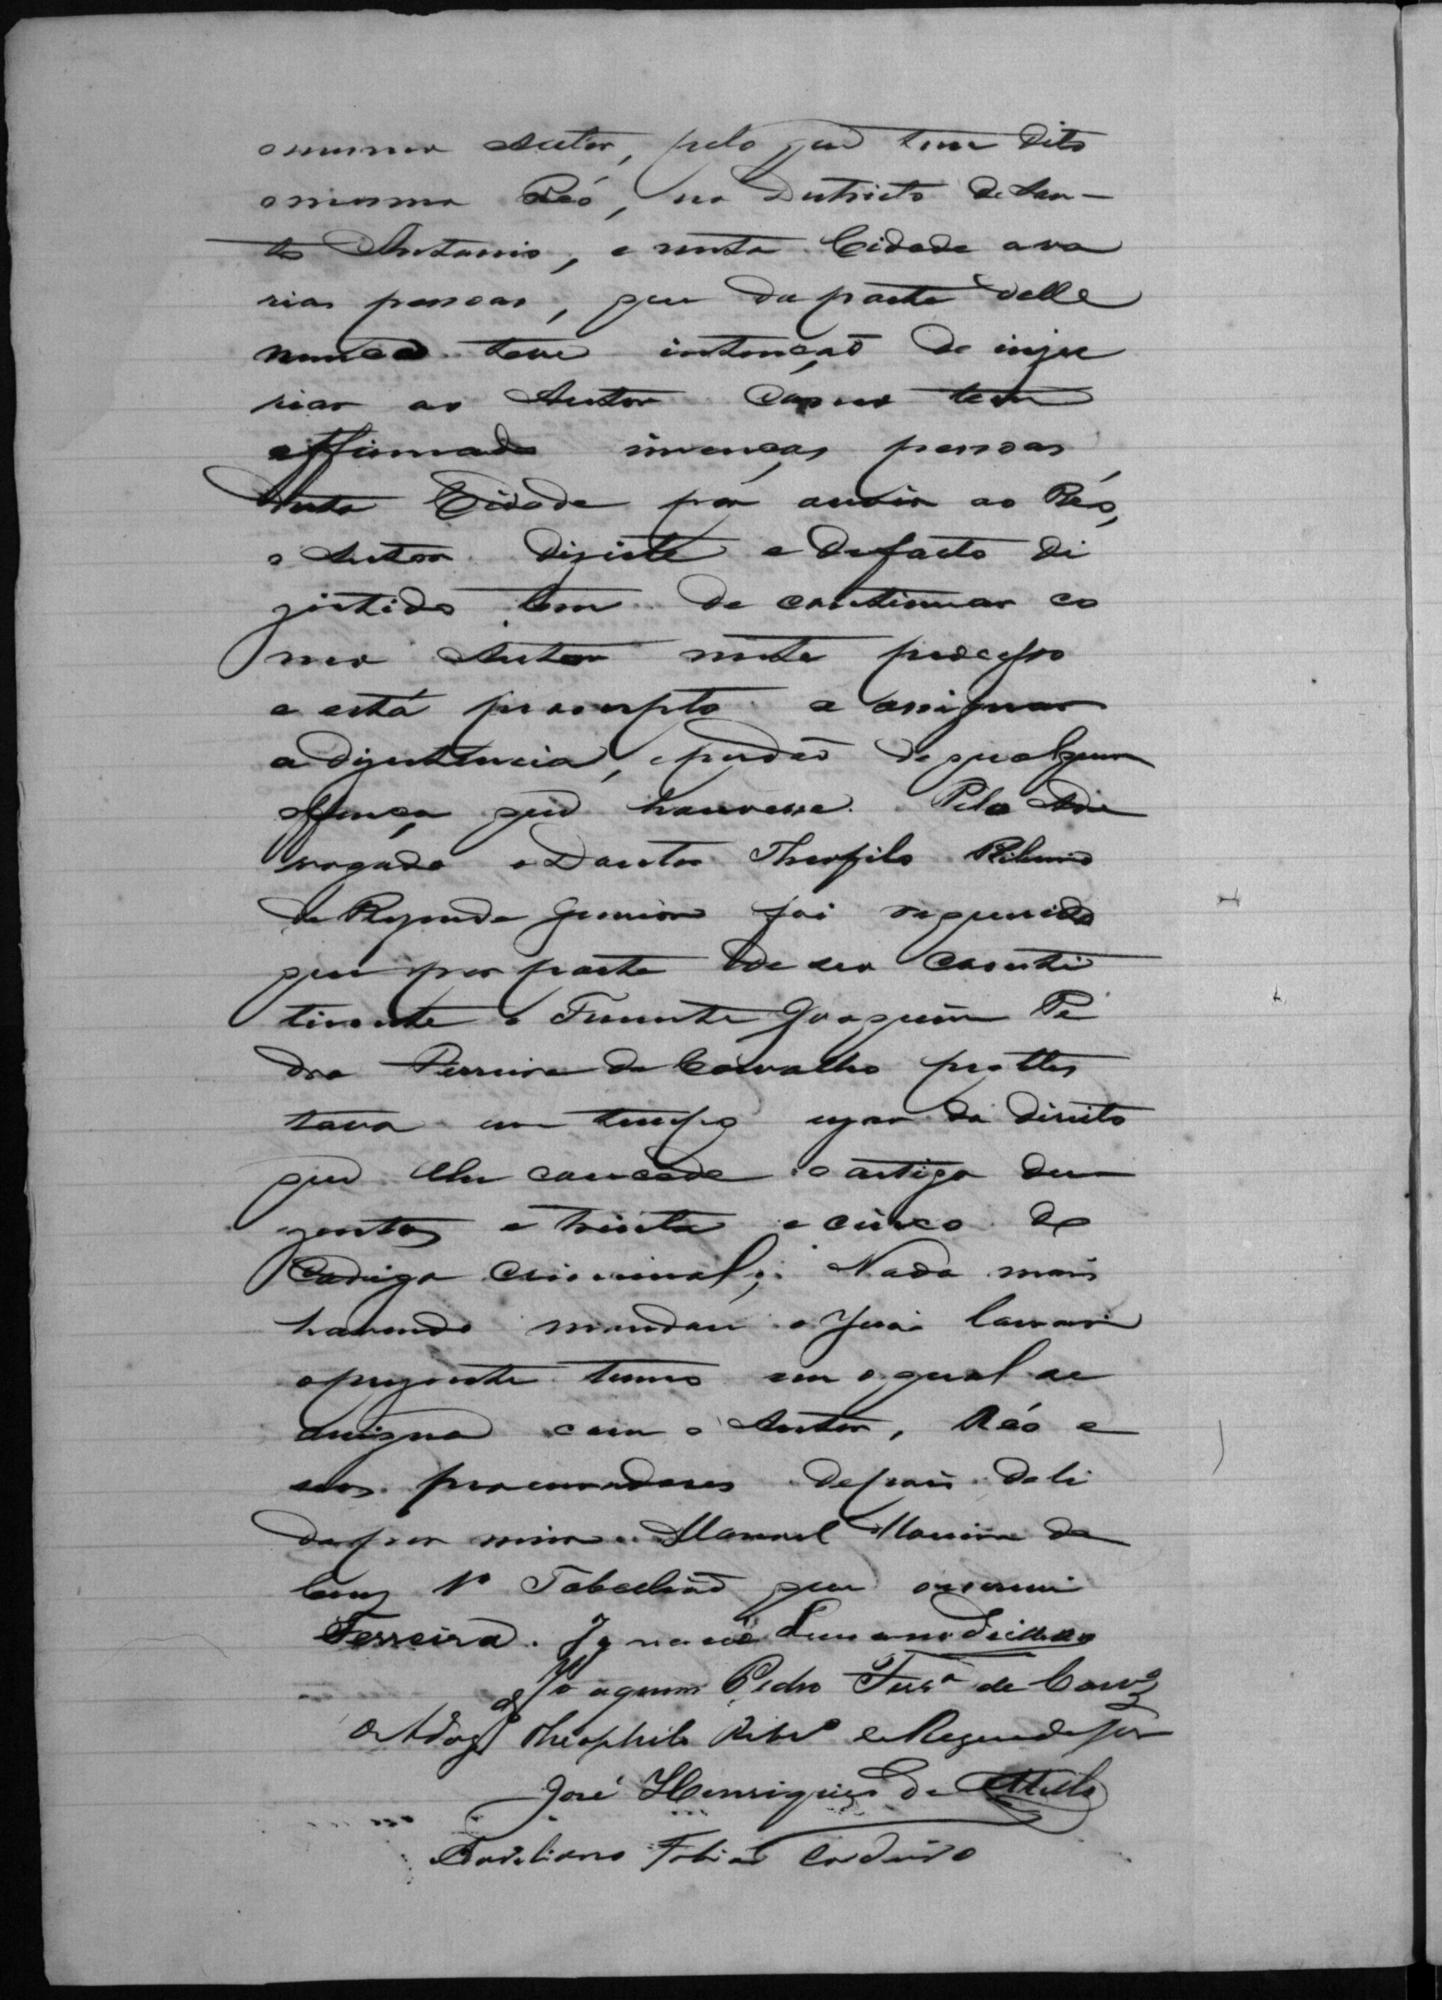 omesmo Autor, pelo que tem dito
omesmo Réo, no Districto de San-
to Antonio, e nesta Cidade a va
rias pessoas, que da parte delle
nunca teve intenção de inju
riar ao Autor como tem
affirmado pessoas
desta Cidade por ouvir ao Réo,
o Autor disiste e defacto di
zistido tem de continuar co
mo Autor neste processo
e está prompto a assignar
a dizistencia, e perdão de qualquer
offença que houvesse. Pelo Adv
vogado o Doutor Theofilo Ribeiro
de Rezende Junior foi requerido
que por parte de seo Consti
tuinte o Tenente Joaquim Pe
dro Ferreira de Carvalho protes
tava em tempo uzar do direito
que lhe concede o artigo du
zentos e trinta e cinco do
Codigo Criminal; Nada mais
havendo mandou o Juiz lavrar
o prezente termo em o qual se
assigna com o Autor, Réo e
seos procuradores depois de li
do por mim Manoel da
Cruz 1º Tabellião que o escrevi
Ferreira. Ignacio
Joaquim Pedro Ferrª de Carvº
O Advº Theophilo Ribrº de Rezende Jor
José Henriques de Mello
Fabiano Cordeiro